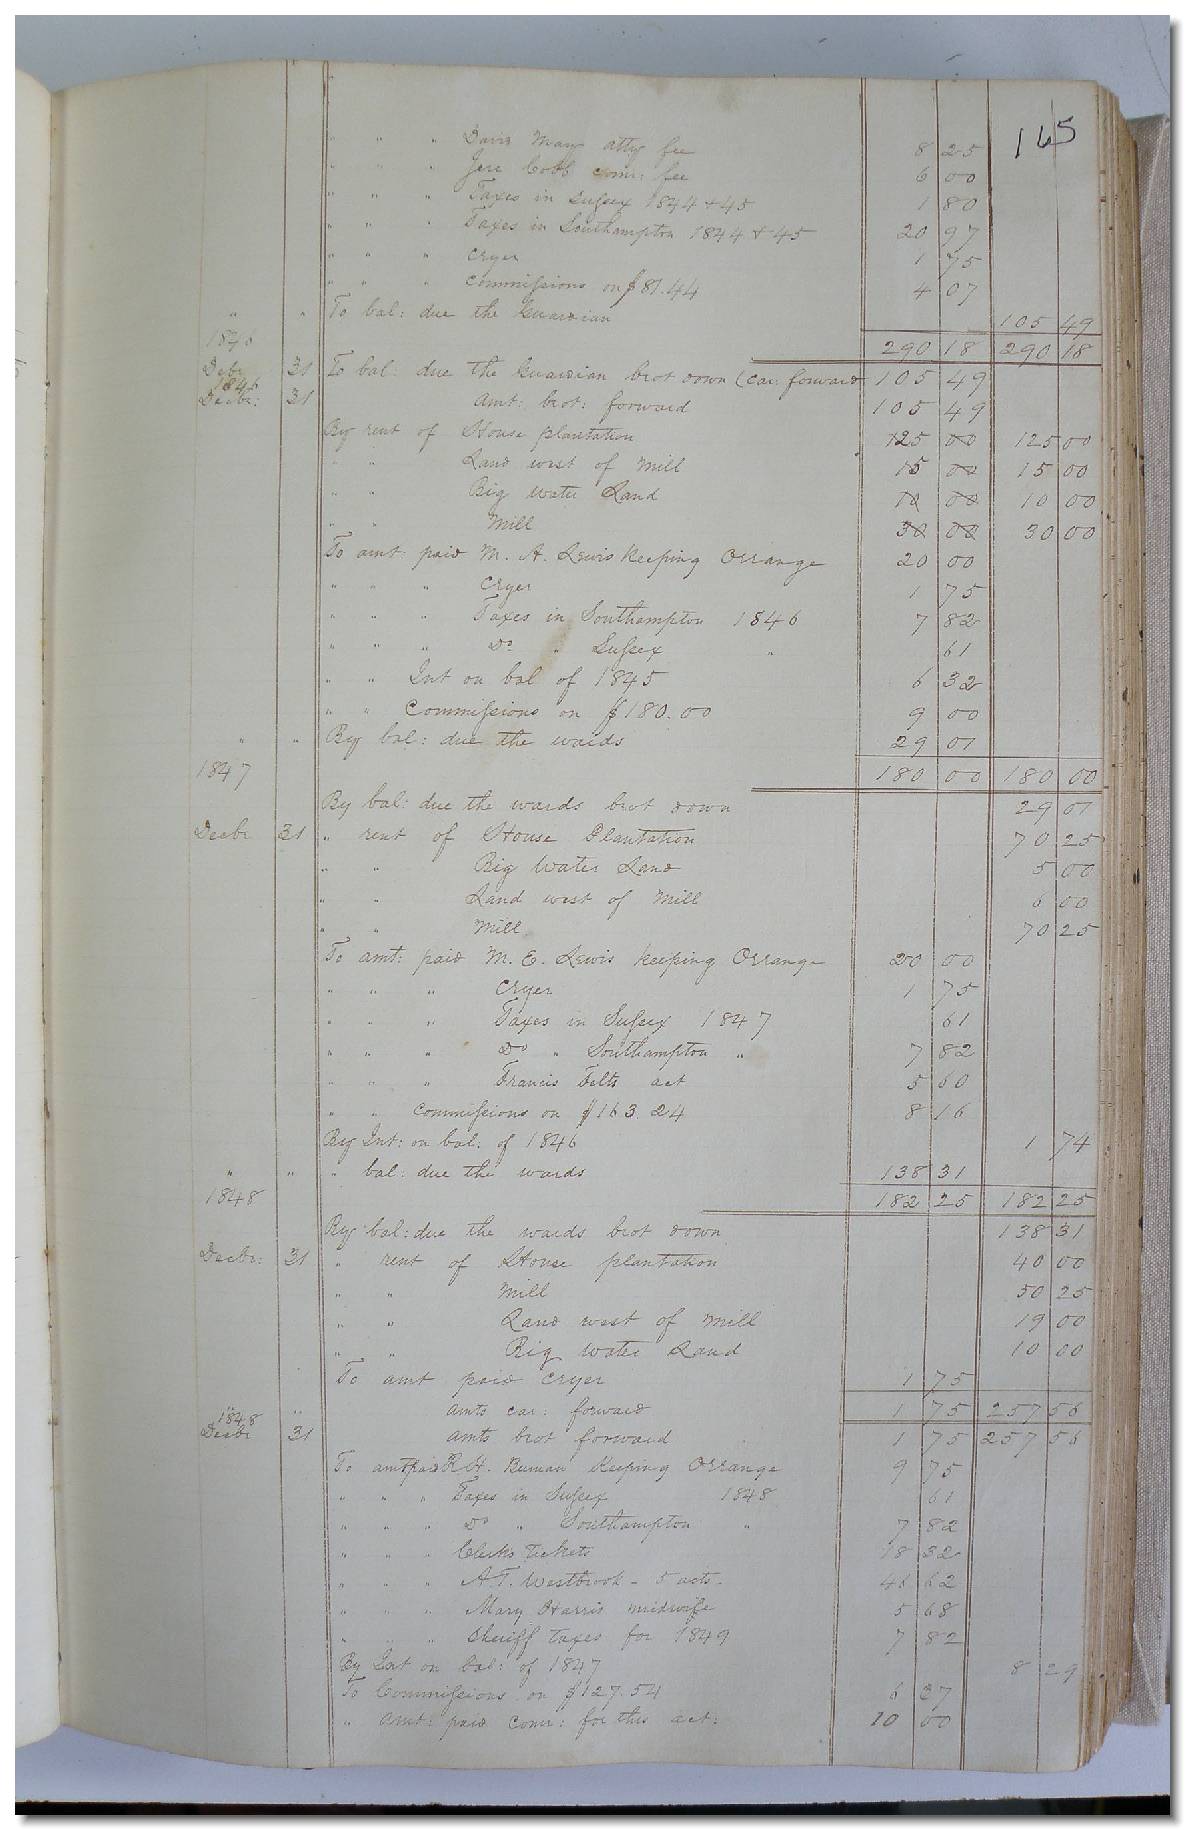 165
" " " David May atty fee 8 25
" " " Jere Cobb comr: fee 6 00
" " " Taxes in Sussex 1844 + 45 1 80
" " " Taxes in Southampton 1844 + 45 20 97
" " " Cryer 1 75
" " " Commissions on $81.44 4 07
" " To bal: due the Guardian 105 49
1846 290 18 290 18
Decbr 31 To bal: due the Guardian brot down (car: forward 105 49
1846
Decbr: 31 amt: brot: forward 105 49
By rent of House plantation 125 00 125 00
" " Land west of Mill 15 00 15 00
" " Big Water Land 10 00 10 00
" " Mill 30 00 30 00
To amt paid M. A. Lewis Keeping Orrange 20 00
" " " Cryer 1 75
" " " Taxes in Southampton 1846 7 82
" " " Do " Sussex " 61
" " Int on bal of 1845 6 32
" " Commissions on $180.00 9 00
" " By bal: due the wards 29 01
1847 180 00 180 00
By bal: due the wards brot down 29 01
Decbr 31 " rent of House Plantation 70 25
" " Big Water Land 5 00
" " Land west of Mill 6 00
" " Mill 70 25
To amt: paid M. E. Lewis Keeping Orrange 20 00
" " " Cryer 1 75
" " " Taxes in Sussex 1847 61
" " " Do " Southampton " 7 82
" " " Francis Felts act 5 60
" " Commissions on $163.24 8 16
By Int: on bal: of 1846 1 74
" " " bal: due the wards 138 31
1848 182 25 182 25
By bal: due the wards brot down 138 31
Decbr: 31 " rent of House plantation 40 00
" " Mill 50 25
" " Land west of Mill 19 00
" " Big Water Land 10 00
To amt paid Cryer 1 75
" " amts car: forward 1 75 257 56
1848
Decbr 31 amts brot forward 1 75 257 56
To amt paid R.H. Keeping Orrange 9 75
" " " Taxes in Sussex 1848 61
" " " Do " Southampton " 7 82
" " " Clerks Tickets 18 32
" " " A.T. Westbrook - 5 acts. 46 62
" " " Mary Harris midwife 5 68
" " " Sheriff Taxes for 1849 7 82
By Int on bal: of 1847 8 29
To Commissions on $127.54 6 37
" amt: paid comr: for this act: 10 00